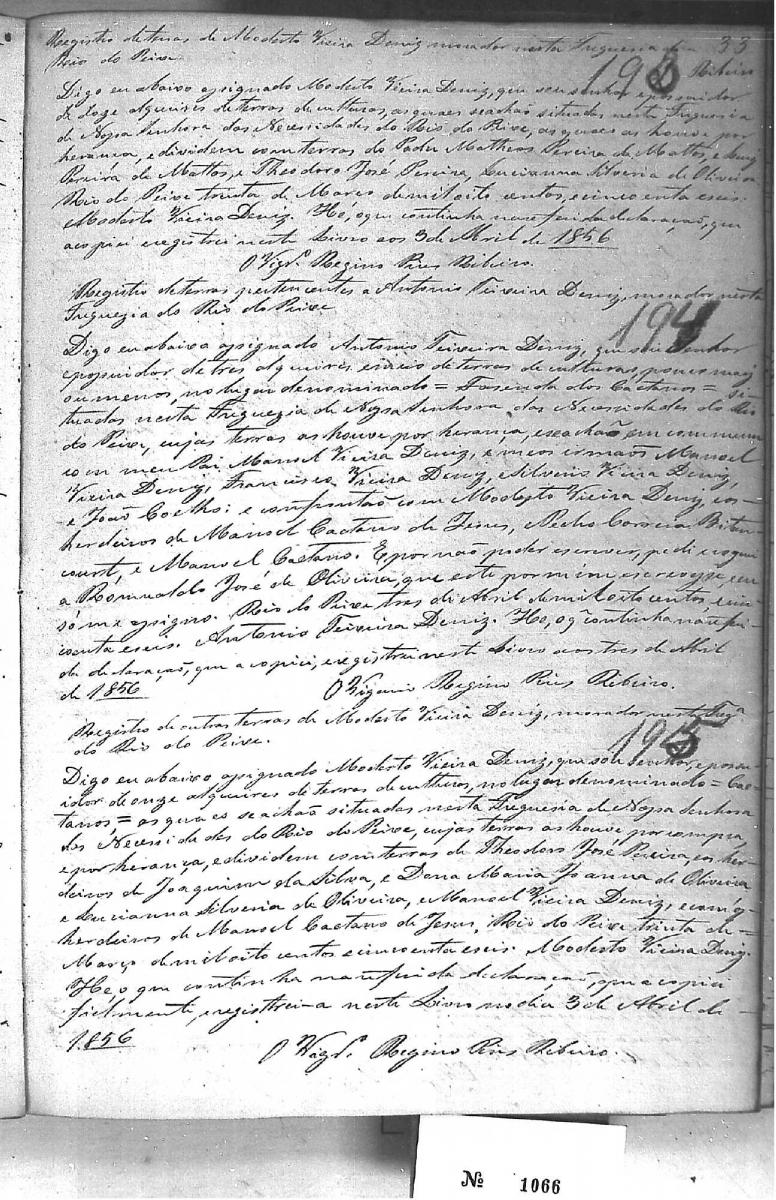 Registro de terras de Modesto Vieira Deniz morador nesta Freguesia do 33
Rio do Peixe. 193 Ribeiro
Digo eu abaixo assignado Modesto Vieira Deniz, que sou senhor e possuidor
de doze alqueires de terras de culturas, as quaes se achão situadas nesta Freguesia
de Nossa Senhora das Necessidades do Rio do Peixe, as quaes as houve por
herança, e dividem com terras do Padre Matheos Pereira de Mattos, e Luiz
Pereira de Mattos, e Theodoro José Pereira, Lucianna Silveria de Oliveira
Rio do Peixe trinta de Março de mil oito centos, e cincoenta e seis.
Modesto Vieira Deniz. Hé, o que continha na referida declaração, que
a copiei e registrei neste Livro aos 3 de Abril de 1856
O Vigrº. Regino Pires Ribeiro.
Registro de terras pertencentes a Antonio Teixeira Deniz, morador nesta
Freguezia do Rio do Peixe 194
Digo eu abaixo assignado Antonio Teixeira Deniz, que sou Senhor
e possuidor de tres alqueires e meio de terras de culturas, pouco mais
ou menos, no lugar denominado = Fasenda dos Caetanos = si-
tuadas nesta Freguezia de Nossa Senhora das Necessidades do Rio
do Peixe, cujas terras as houve por herança, e se achão em commum
com meu Pai Manoel Vieira Deniz, e meos irmãos Manoel
Vieira Deniz, Francisco Vieira Deniz, e Silverio Vieira Deniz,
e João Coelho: e confrontão com Modesto Vieira Deniz, cos
herdeiros de Manoel Caetano de Jesus, Pedro Correia Biten
court, e Manoel Caetano. E por não poder escrever, pedi e roguei
a Romualdo José de Oliveira, que este por mim escrevesse, e eu
só me assigno. Rio do Peixe tres de Abril de mil oito centos, e cin
coenta e seis. Antonio Teixeira Deniz. Hé, o q̃ continha na referi-
da declaração, que a copiei, e registrei neste Livro aos tres de Abril
de 1856 O Vigario Regino Pires Ribeiro.
Registro de outras terras de Modesto Vieira Deniz, morador nesta Fregª
do Rio do Peixe. 195
Digo eu abaixo assignado Modesto Vieira Deniz, que sou Senhor, e possu-
idor de onze alqueires de terras de culturas, no lugar denominado = Cae-
tanos = as quaes se achão situadas nesta Freguesia de Nossa Senhora
das Necessidades do Rio do Peixe, cujas terras as houve por compra,
e por herança, e dividem com terras de Theodoro José Pereira, cos her-
deiros de Joaquim da Silva, e Dona Maria Joanna de Oliveira
e Lucianna Silveria de Oliveira, e Manoel Vieira Deniz, e com os
herdeiros de Manoel Caetano de Jesus, Rio do Peixe trinta de =
Março de mil oito centos e cincoenta e seis. Modesto Vieira Deniz.
He o que continha na referida declaração, que a copiei
fielmente, e registrei-a neste Livro no dia 3 de Abril de
1856
O Vigrº. Regino Pires Ribeiro.
Nº 1066